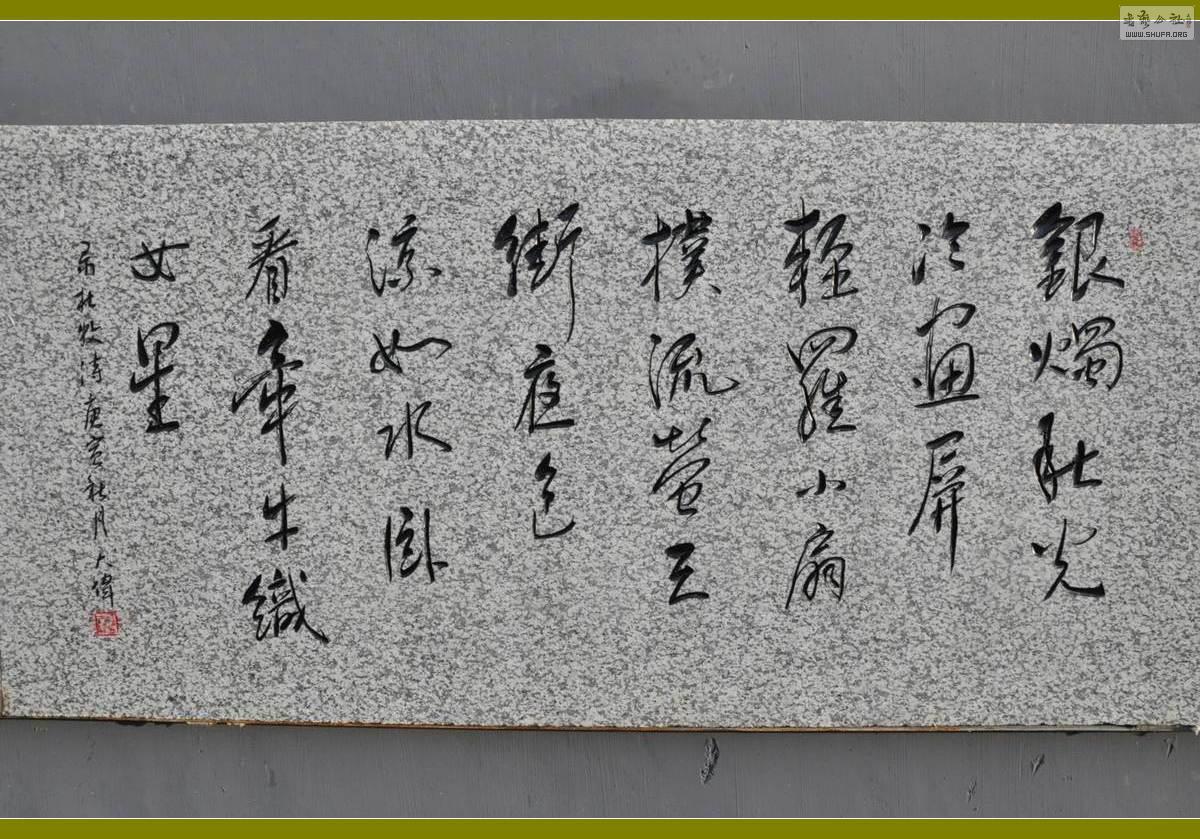 銀燭秋光
冷畫屏
輕羅小扇
撲流螢天
街夜色
涼如水臥
看牽牛織
女星
杜牧詩庚寅秋月大偉
書藝公社
WWW.SHUFA.ORG